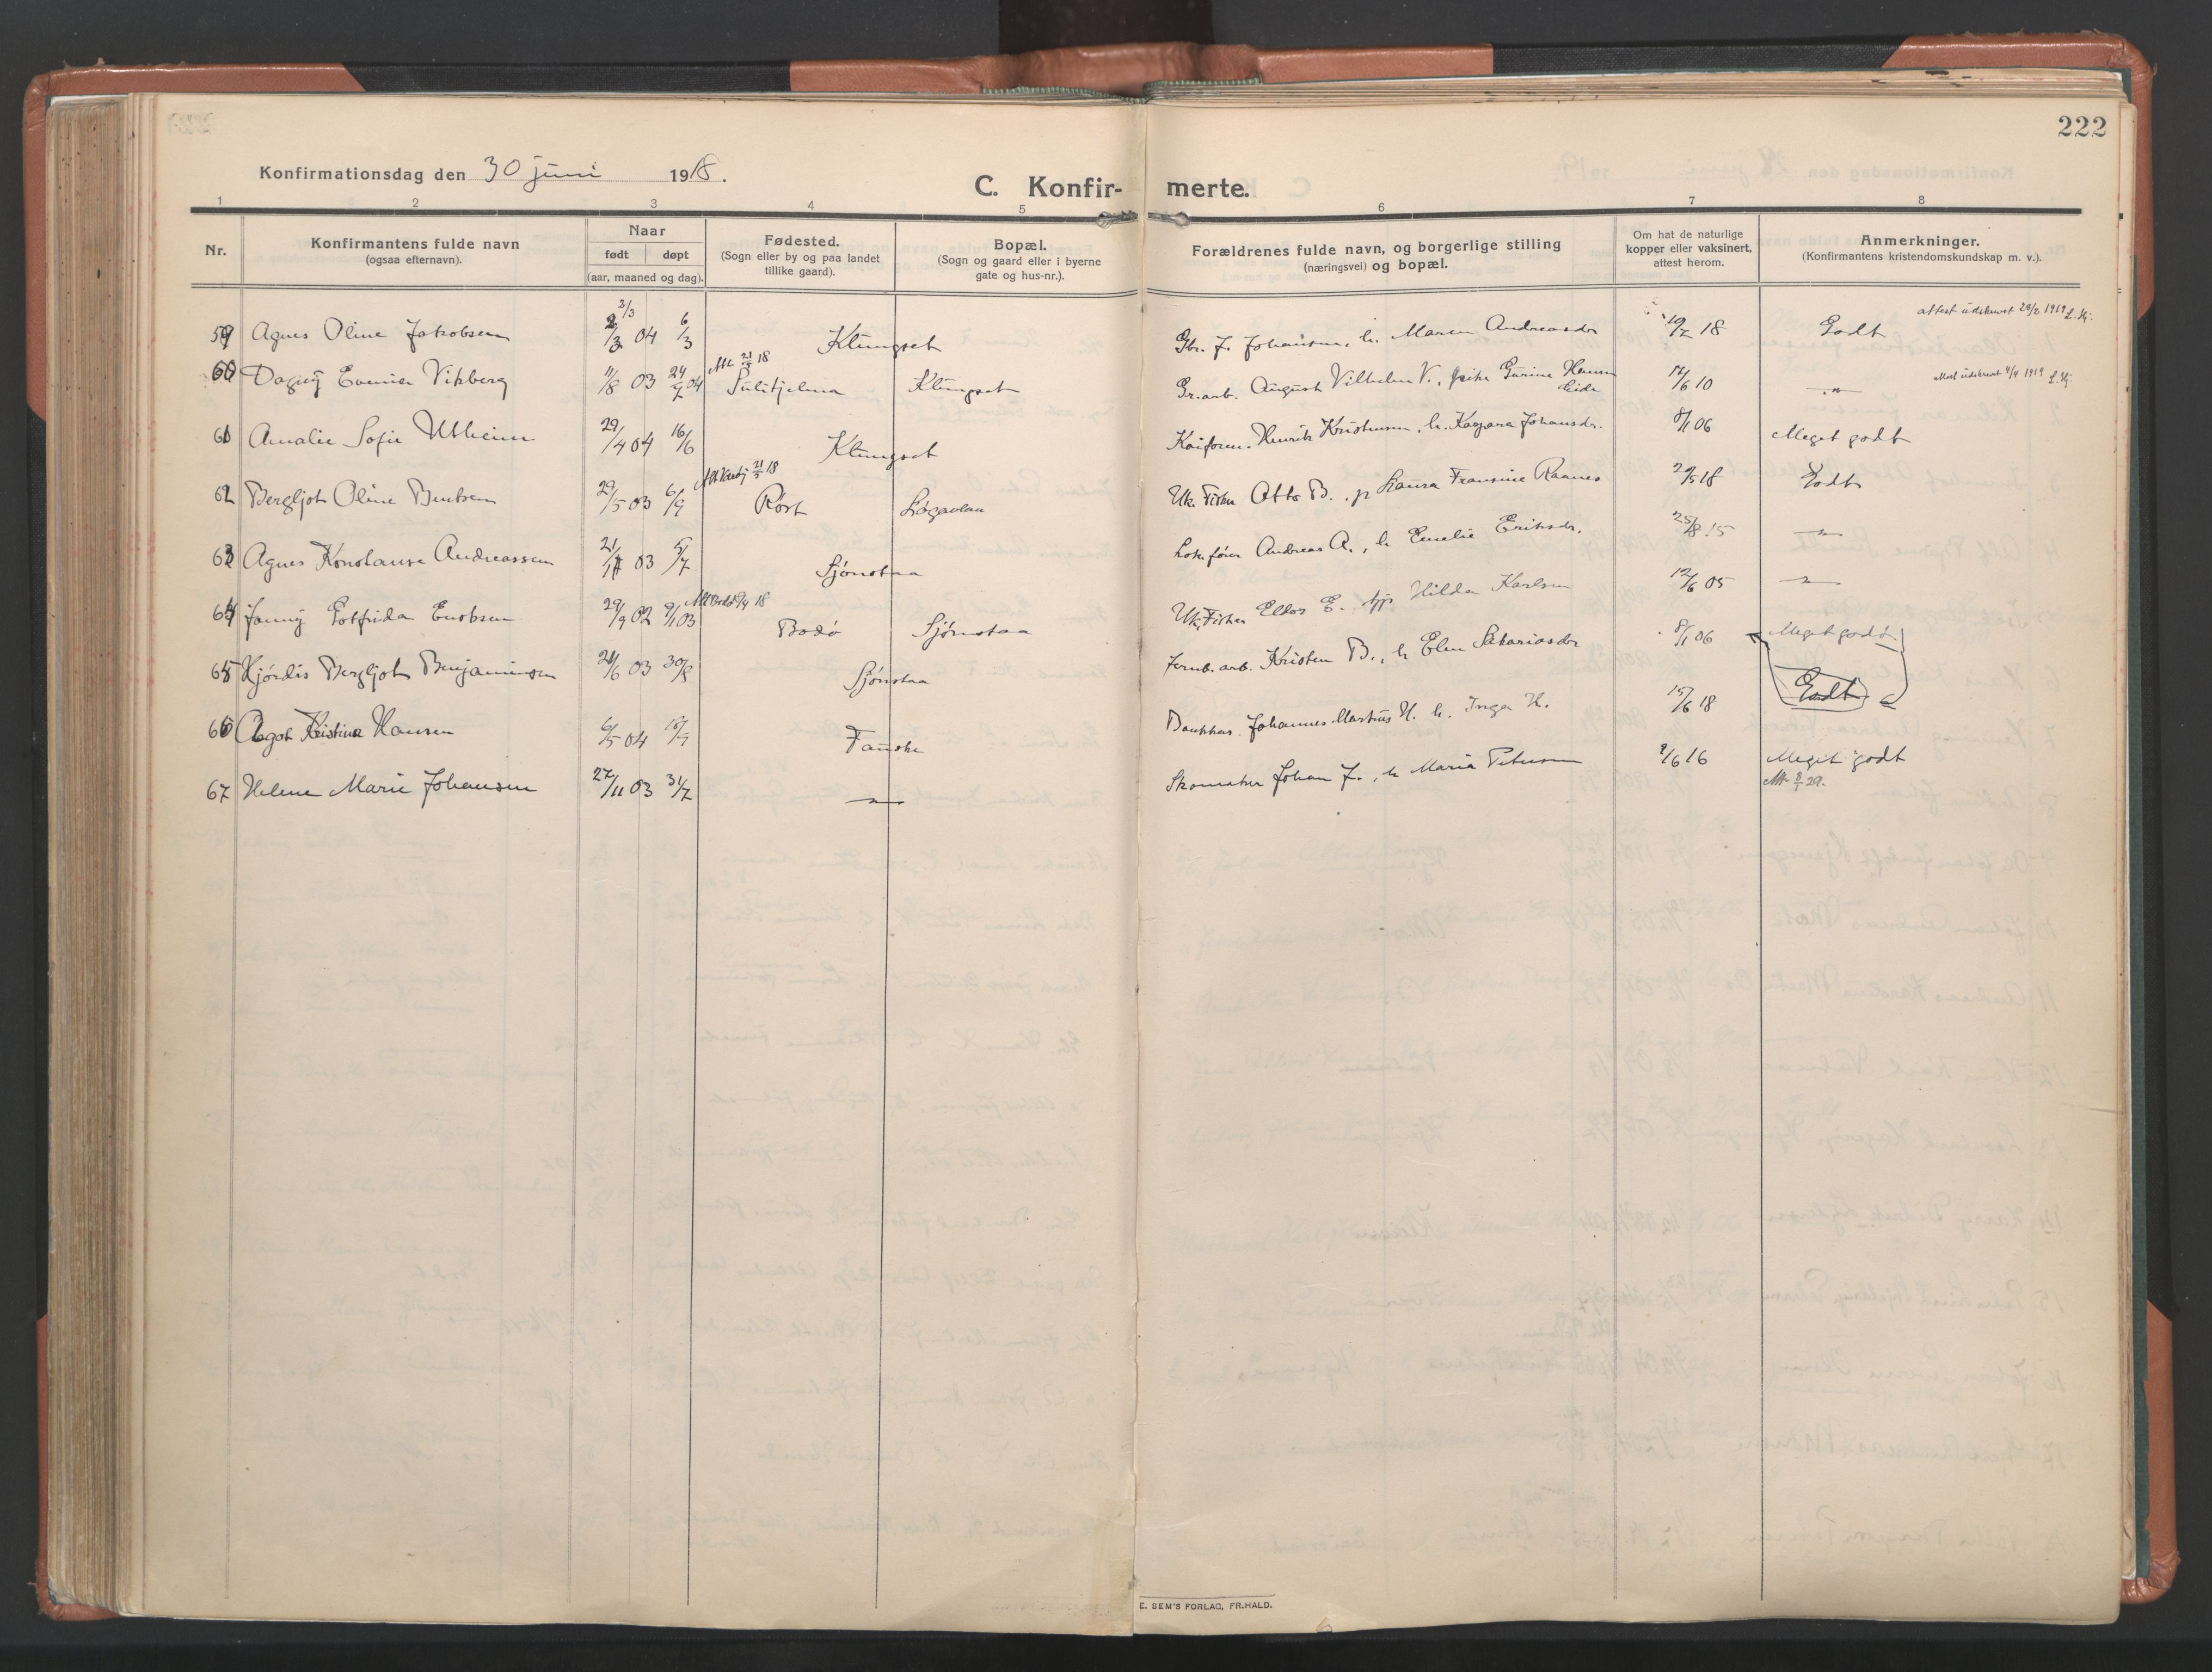 222
Konfirmationsdag den 30 juni 1918.
C. Konfir- merte.
1 2 3 4 5 6 7 8
Nr.
Konfirmantens fulde navn
(ogsaa efternavn).
Naar
født døpt
(aar, maaned og dag).
Fødested.
(Sogn eller by og paa landet
tillike gaard).
Bopæl.
(Sogn og gaard eller i byerne
gate og hus-nr.).
Forældrenes fulde navn, og borgerlige stilling
(næringsvei) og bopæl.
Om hat de naturlige
kopper eller vaksinert,
attest herom.
Anmerkninger.
(Konfirmantens kristendomskundskap m. v.).
59 Agnes Oline Jakobsen 2/3 04 6/3 Klungset Gbr. J. Johansen, h. Maren Andreasdr 19/2 18 Godt
60 Dagny Vikberg 11/8 03 24/7 04 Att. 21/5 18 Sulitjelma Klungset Gr.arb. August Vilhelm V., Gurine Hansen Eide 17/6 10 „
61 Amalie Sofie Utheim 29/4 04 16/6 Klungset Henrik Kristensen, h. Kaspara Johansdr. 8/1 06 Meget godt
62 Bergljot Oline Bentsen 29/5 03 6/9 21/5 18 Røst Løgavlen Uk. Fisker Otto B., p. Laura Fransine Raanes 29/5 18 Godt
63 Agnes Konstanse Andreassen 21/4 03 5/7 Sjønstaa Lok.fører Andreas A., h Emelie Eriksdr. 25/8 15 „
64 Fanny Gotfrida Enoksen 29/9 02 9/1 03 Att Bodø 9/4 18 Bodø Sjønstaa Uk. Fisker E. tjp Hilda Karlsen 12/6 05 „
65 Hjørdis Bergljot Benjaminsen 21/6 03 30/8 Sjønstaa Jernb. arb. Kristen B., h Elen Sakariasdr 8/1 06 Meget godt.
66 Aagot Kristine Hansen 6/5 04 15/9 Fauske Johannes Martius H. h. Inga H. 15/6 18 Godt
67 Helene Marie Johansen 27/11 03 31/7 „ Skomaker Johan J., h Maria Petersen 9/6 16 Meget godt
Att. 8/1 29.
attest udskrevet 28/2 1919 L. Hj.
Attest udskrevet 4/4 1919 L. Hj.
E. SEM'S FORLAG, FR.HALD.